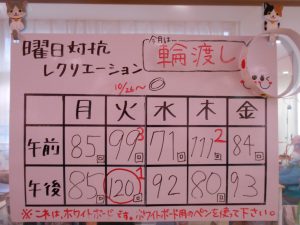 曜日対抗
レクリエーション
今月は…
輪渡し
10/26～
月 火 水 木 金
午前 85回 99回3 71回 111回2 84回
午後 85回 120回1 92 80回 93
※これは、ホワイトボードです。ホワイトボード用のペンを使って下さい。